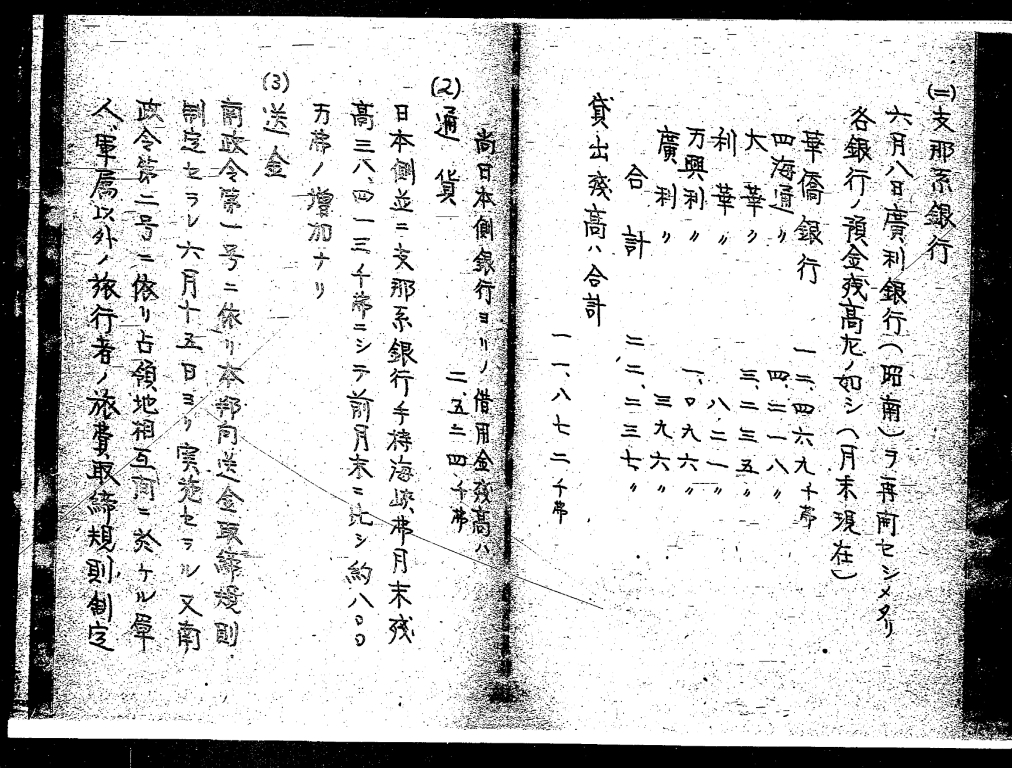 (二)支那系銀行
六月八日廣利銀行(昭南)ヲ再開セシメタリ
各銀行ノ預金残高左ノ如シ(月末現在)
華僑銀行 一二、四六九千弗
四海通〃 四、二一八〃
大華〃 三、二三五〃
利華〃 八二一〃
万興利〃 一、〇九六〃
廣利〃 三九六〃
合計 二二、二三七〃
貸出残高ハ合計
一一、八七二千弗
尚日本側銀行ヨリノ借用金残高ハ
二、五二四、千弗
(2)通貨
日本側並ニ支那系銀行手持海峡弗月末残
高三八、四一三千弗ニシテ前月末ニ比シ約八〇〇
万弗ノ増加ナリ
(3)送金
南政令第一号ニ依リ本邦向送金取締規則
制定セラレ六月十五日ヨリ実施セラル又南
政令第二号ニ依リ占領地相互間ニ於ケル軍
人、軍属以外ノ旅行者ノ旅費取締規則制定